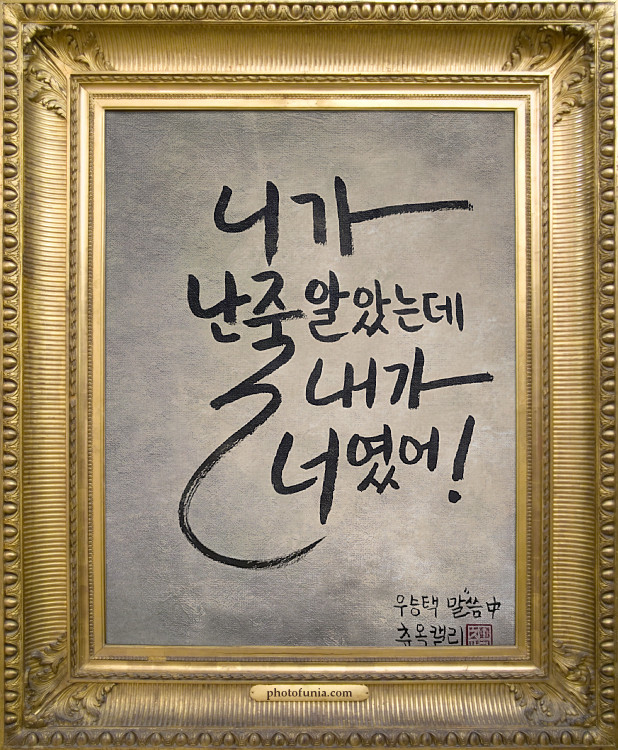 니가
난줄 알았는데
내가
너였어!
우승택 말씀中
츄옥캘리
photofunia.com